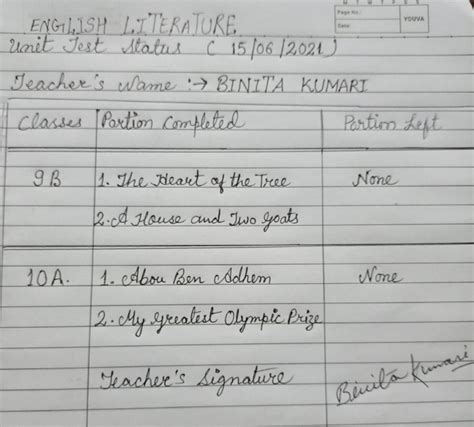 ENGLISH LITERATURE
Page No.:
Date:
YOUVA
Unit Test Status ( 15/06/2021 )
Teacher's Name :→ BINITA KUMARI
Classes Portion Completed Portion Left
9B 1. The Heart of the Tree None
2. A House and Two Goats
10A. 1. Abou Ben Adhem None
2. My Greatest Olympic Prize
Teacher's Signature Binita Kumari